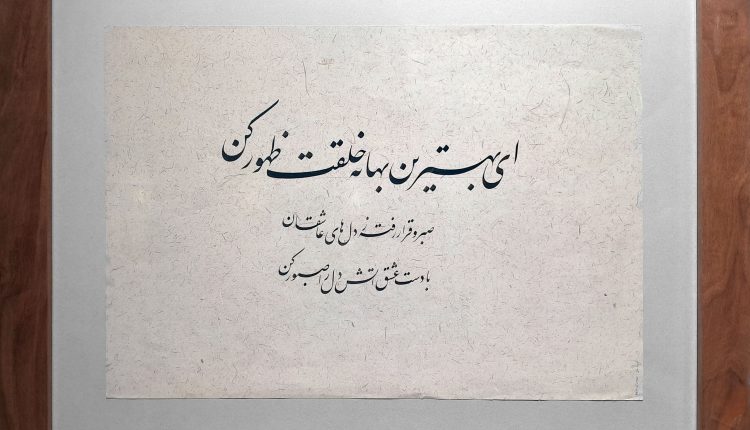 ای بهترین بهانه خلقت ظهور کن
صبر و قرار رفته ز دل‌های عاشقان
با دست عشق آتش دل را صبور کن